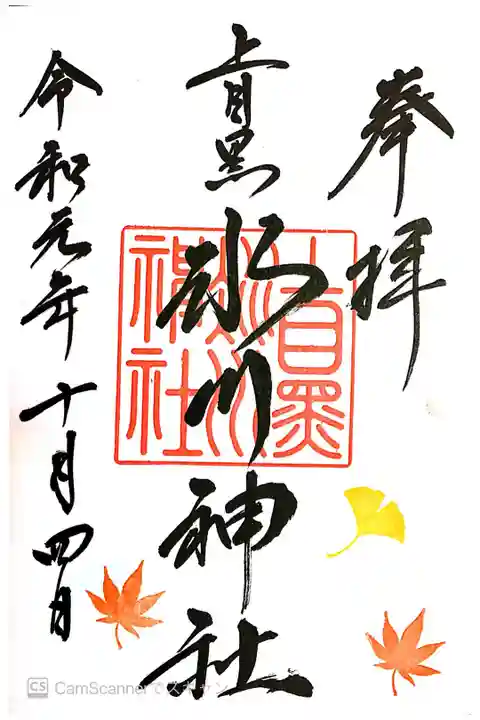 奉拝
上目黒氷川神社
上目黒
氷川
神社
令和元年十月四日
CS CamScannerでスキャン